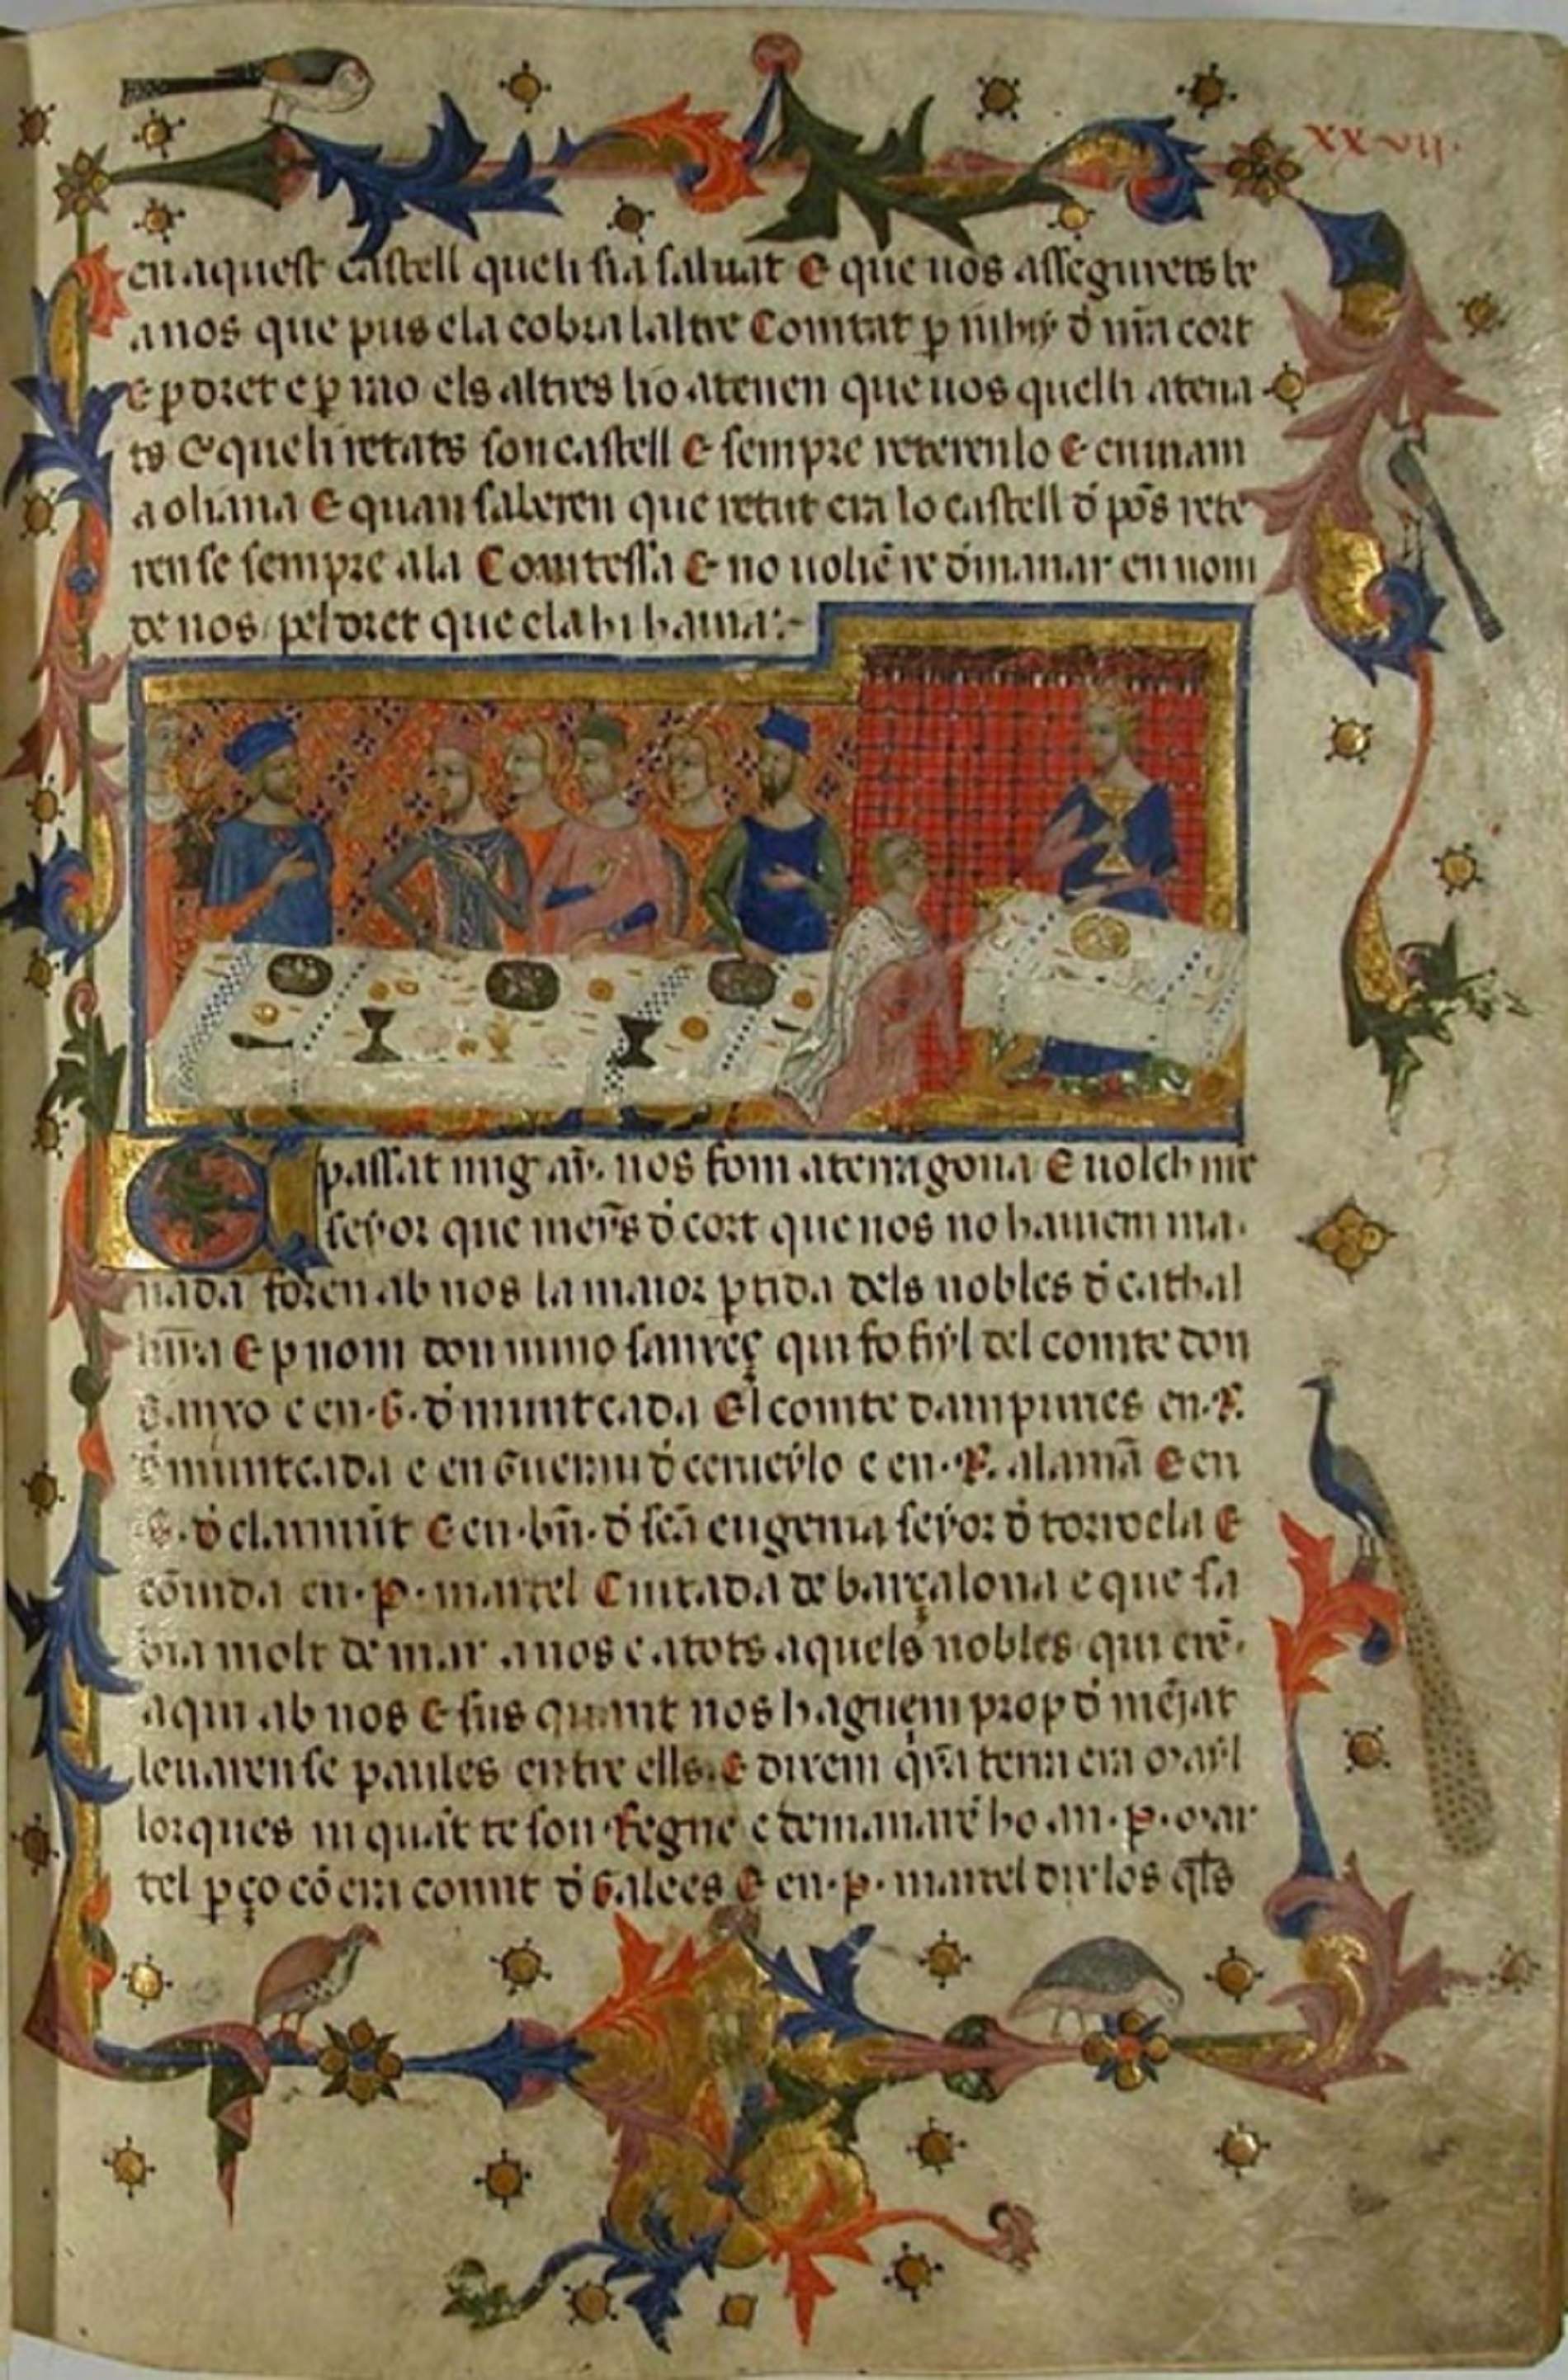 xxvii.
en aquest castell queli sia saluat E que uos assegurets be
a nos que pus ela cobra laltre Comtat p d nr̄a cort
e p dret e p no els altres ho atenen que uos quelh atena
ts E que li retats son castell E sempre reterenlo E enuiam
a oliana E quan saberen que retut era lo castell d pōs rete
ren se sempre ala Comtessa E no uoliē re dmanar en nom
de nos pel dret que ela hi hauia:-
E passat mig ay. nos fom a terragona E uolch nr̄e
seyor que meyns d cort que nos no hauiem ma
nada foren ab nos la maior ptida dels nobles d cathal
E p nom don nuno sanxeç qui fo fiyl del comte don
sanxo e en .G. d muntcada El comte dampuries en .R.
d muntcada e en Gueran d cerueylo e en .R. alamā E en
.G. d claramūt E en .bn̄. d scā eugenia seyor d torroela E
cōuida en .p. martel Ciutada de barçalona e que sa
bia molt de mar a nos e a tots aquels nobles qui erē
aqui ab nos E sus quant nos haguem prop d mējat
leuaren se paules entre ells. E dixem q̄na terra era Mayl
lorques ni quāt te son Regne e demanarē ho an .p. Mar
tel p ço cō era comit d Galees E en .p. martel dix los q̄ls